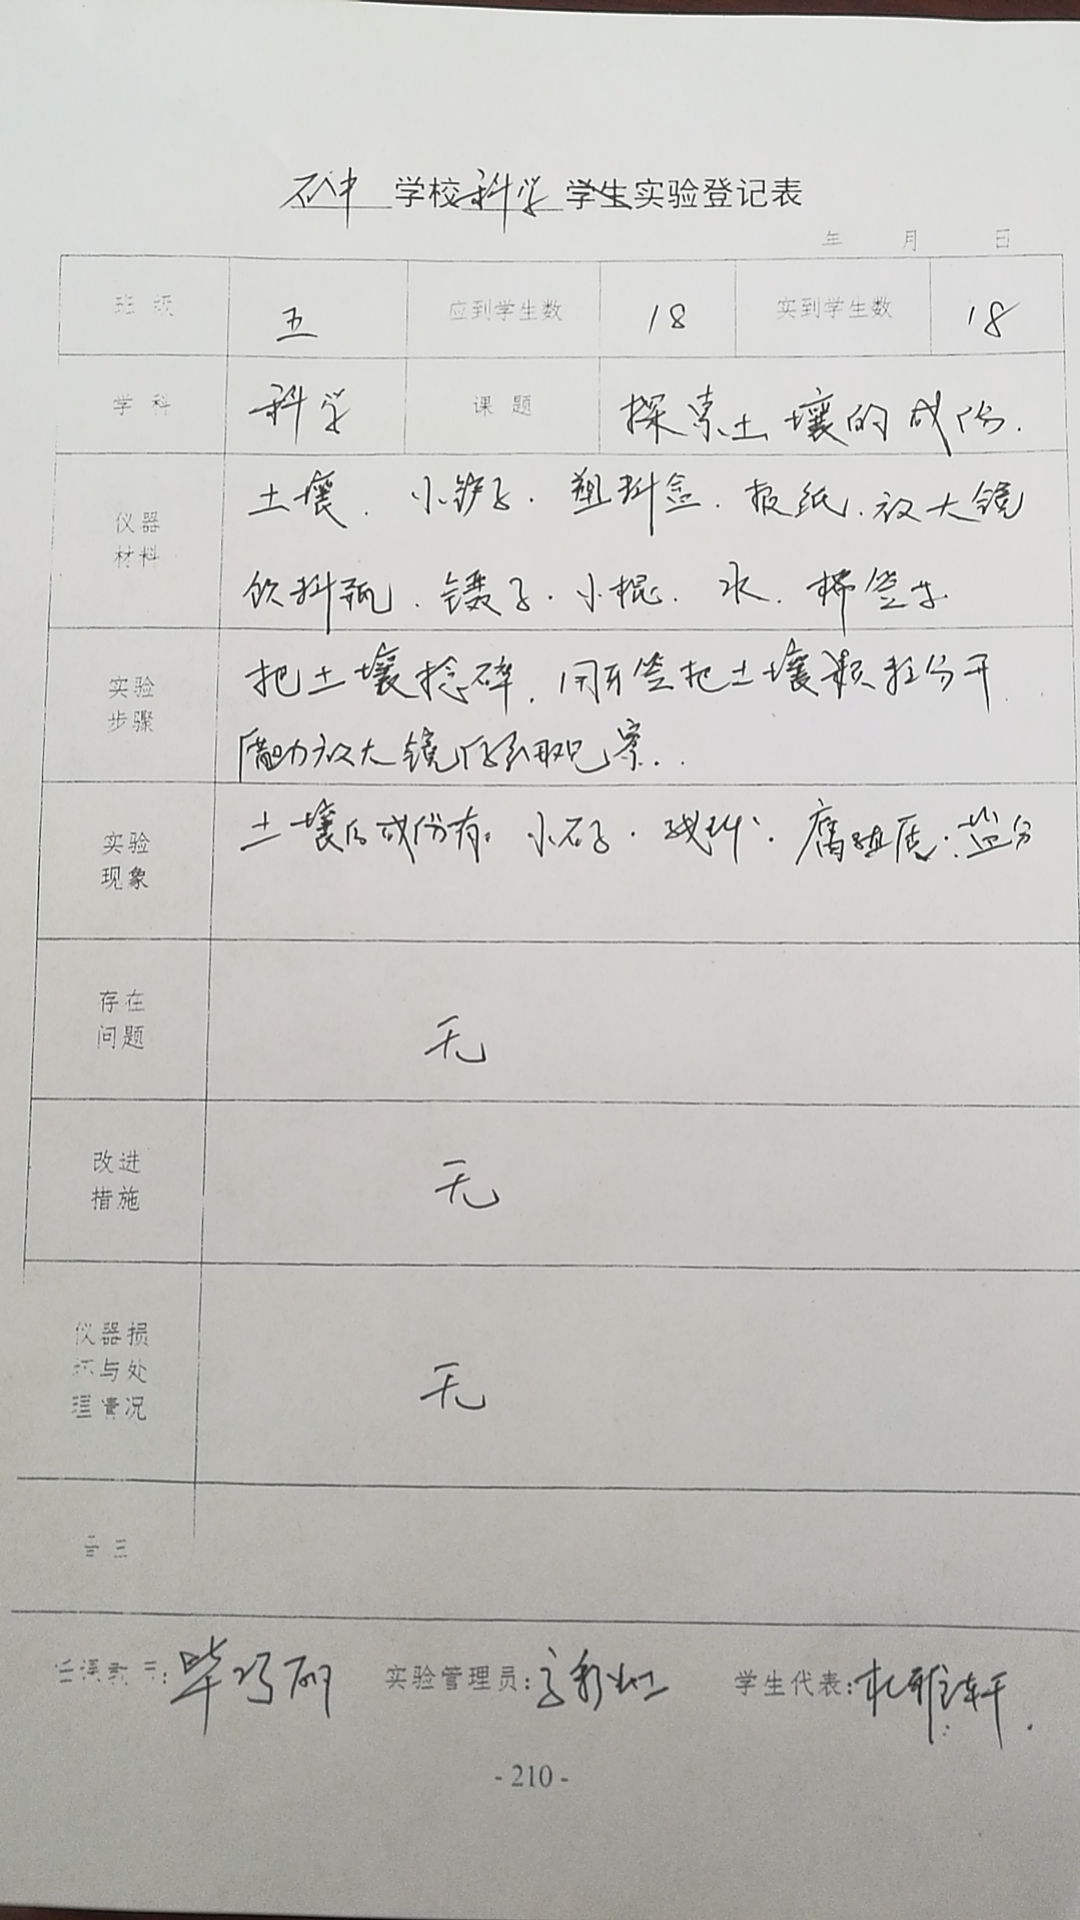 学校科学学生实验登记表
年 月 日
班级 五 应到学生数 18 实到学生数 18
学科 科学 课题 探索土壤的成份.
仪器
材料
土壤. 小铲子. 塑料盒. 报纸. 放大镜
饮料瓶. 镊子. 小棍. 水. 棉签
实验
步骤
把土壤捻碎. 用牙签把土壤颗粒分开
借助放大镜仔细观察..
实验
现象
土壤的成份有: 小石子. 腐殖质. 盐分
存在
问题
无
改进
措施
无
仪器损
坏与处
理情况
无
任课教师: 实验管理员: 学生代表: 杜雅轩.
- 210 -